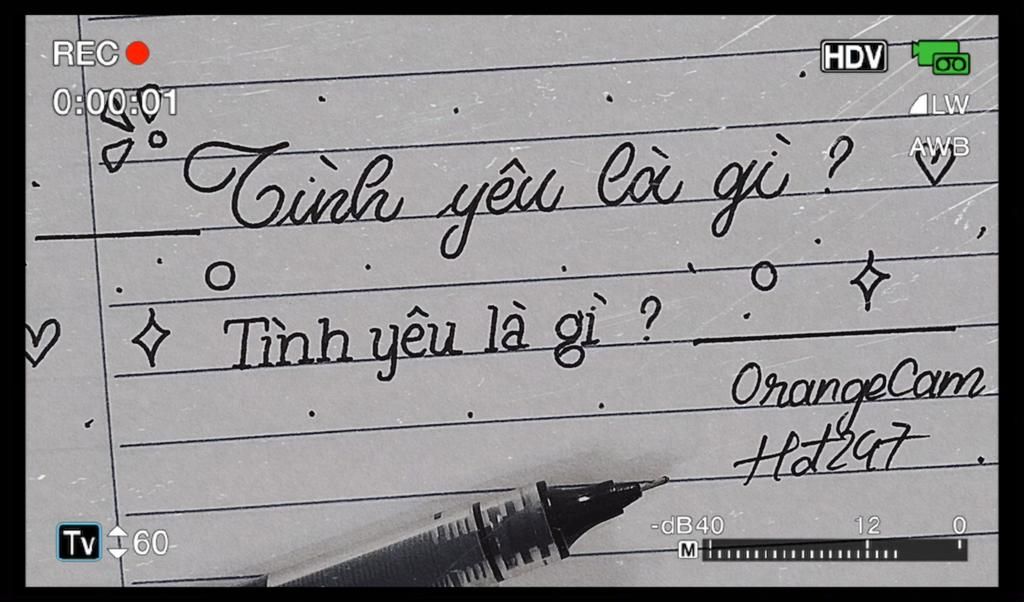 REC
HDV
0:00:01
LW
AWB
Tình yêu là gì ?
Tình yêu là gì ?
OrangeCam
Hd247
Tv 60
-dB 40 12 0
M